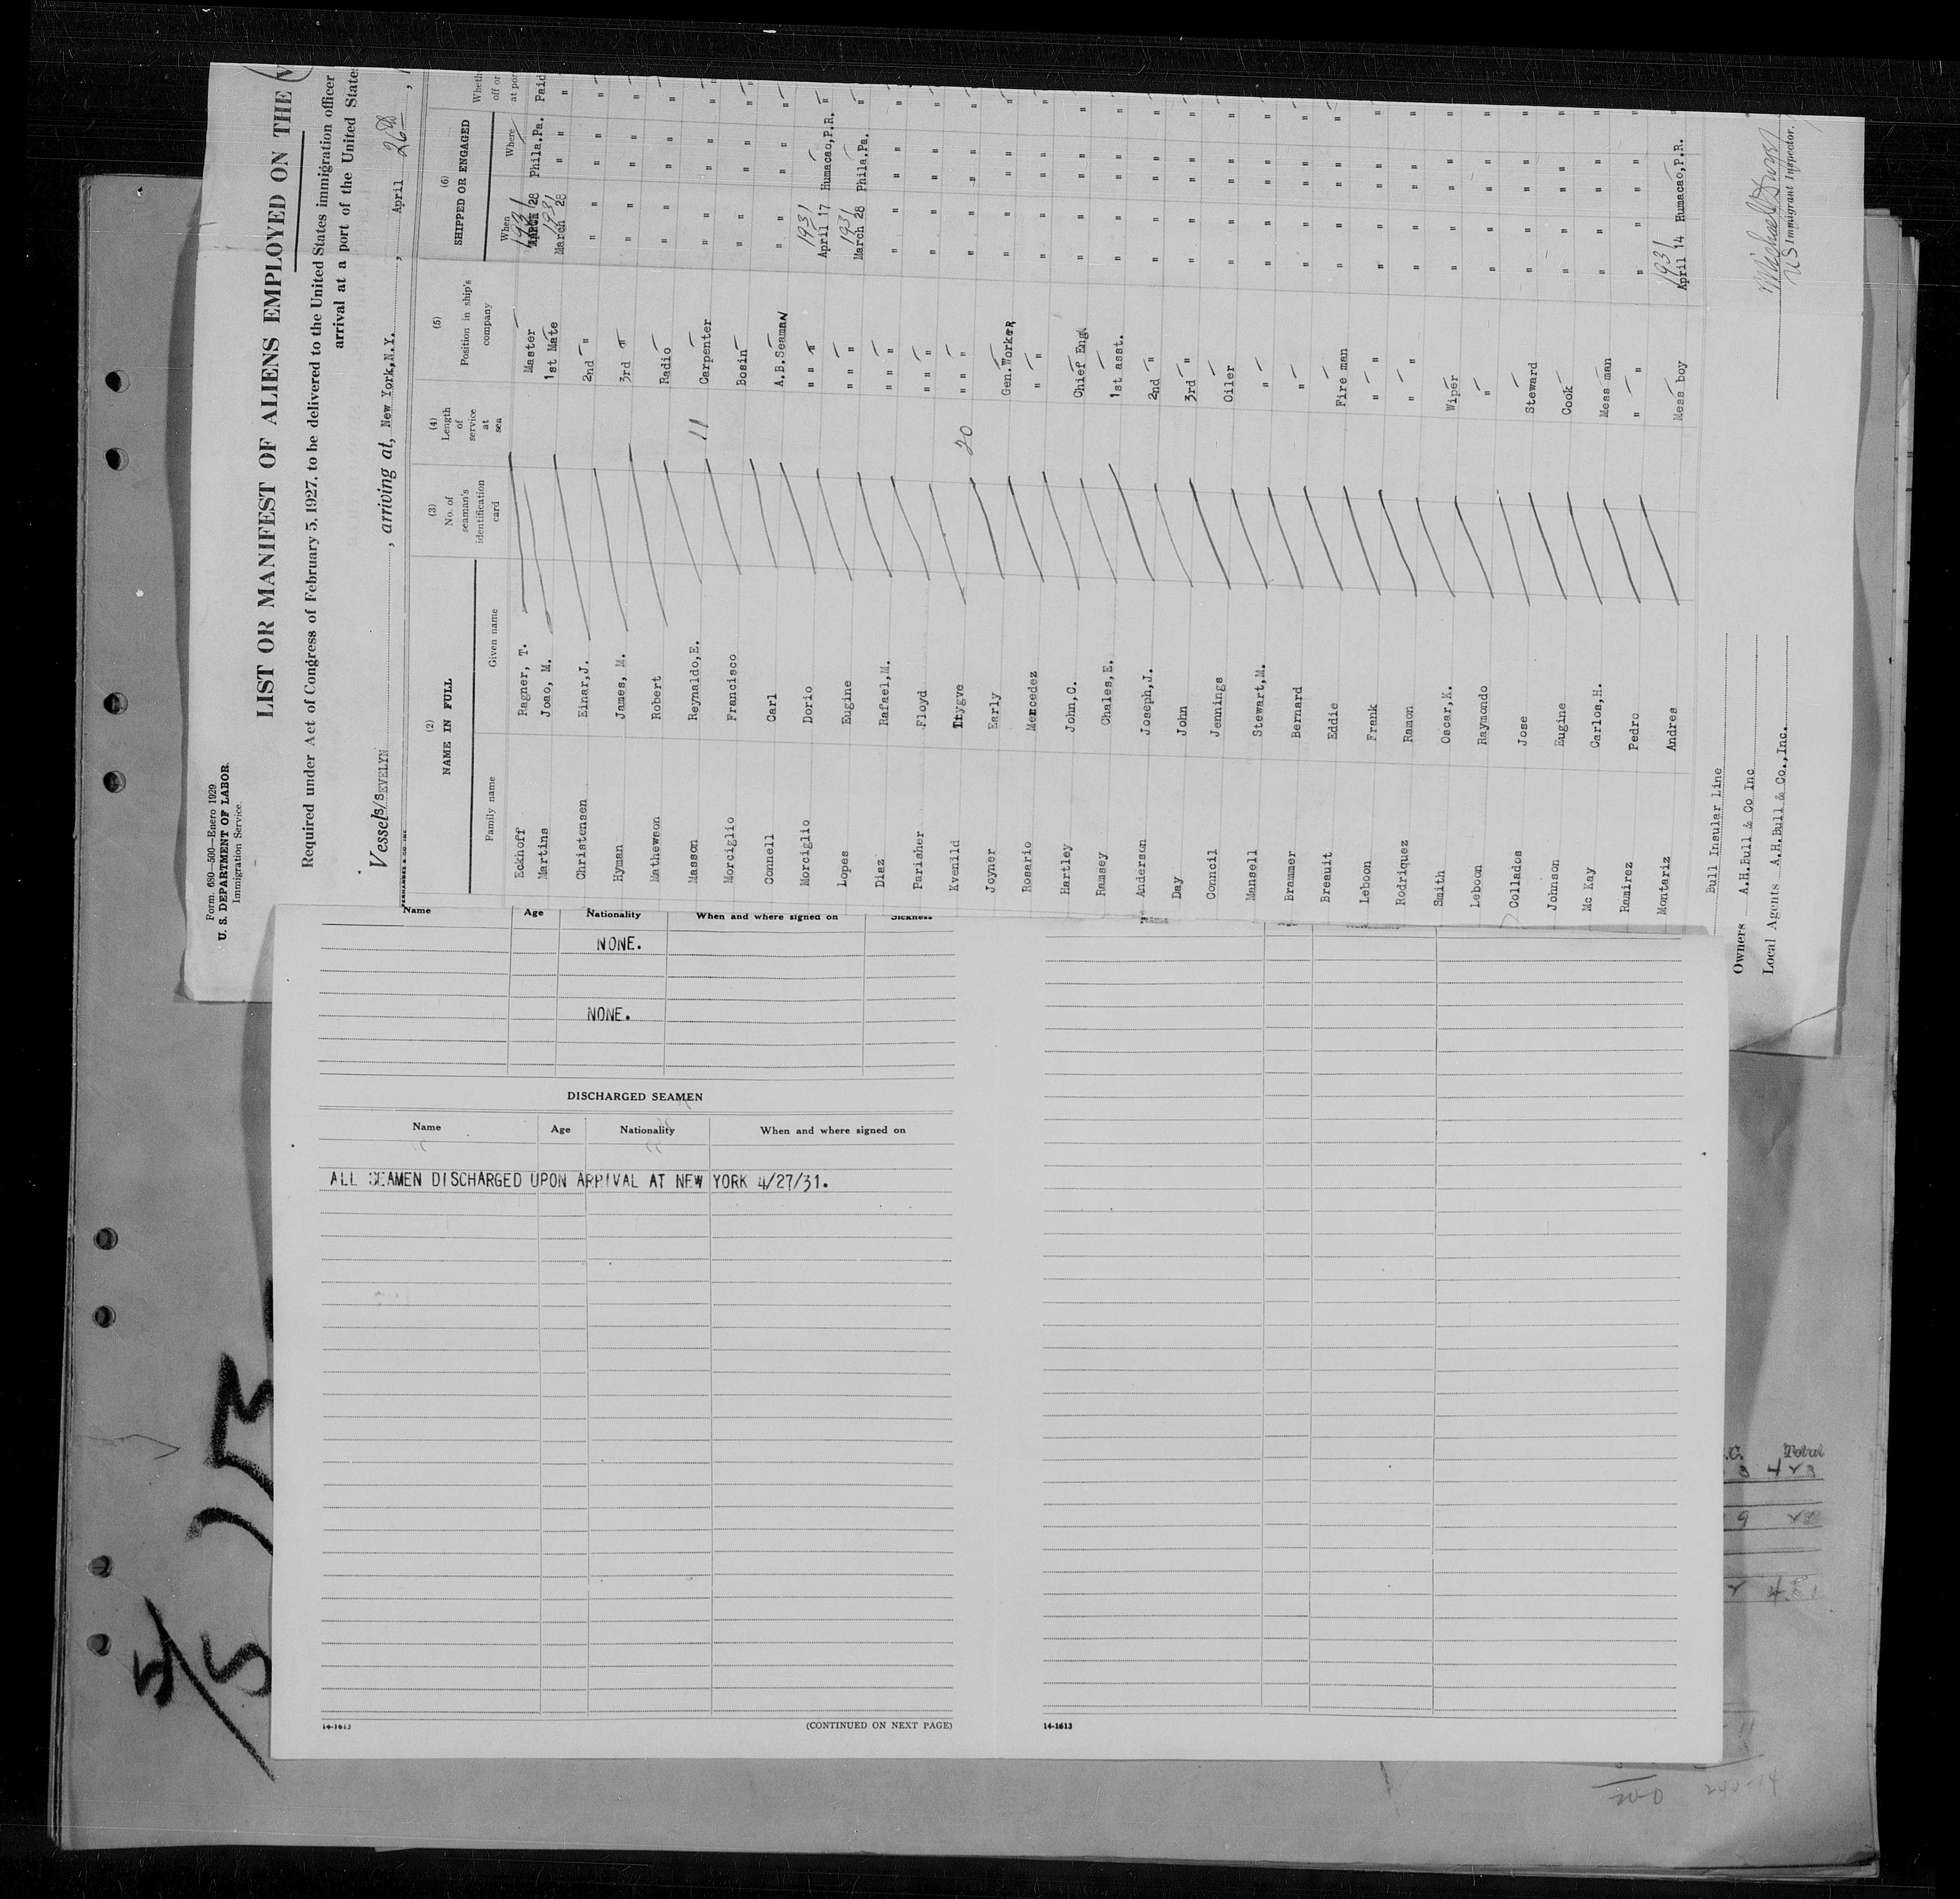 Form. 680—500—Enero 1929
U. S. DEPARTMENT OF LABOR
Immigration Service.
LIST OR MANIFEST OF ALIENS EMPLOYED ON THE
Required under Act of Congress of February 5, 1927, to be delivered to the United States immigration officer
arrival at a port of the United States
Vessel S/S EVELYN , arriving at, New York, N.Y. , April 26th
(2) NAME IN FULL (3) No. of seaman's identification card (4) Length of service at sea (5) Position in ship's company (6) SHIPPED OR ENGAGED
Family name Given name When Where
Eckhoff Ragner, T. Master 1931 March 28 Phila.Pa. Paid
Martins Joao, M. 1st Mate 1931 March 28 " "
Christensen Einar,J. 2nd " " " "
Hyman James, M. 3rd " " " "
Mathewson Robert Radio " " "
Masson Reynaldo,E. 11 Carpenter " " "
Morciglio Francisco Bosin " " "
Connell Carl A.B.Seaman " " "
Morciglio Dorio " " " 1931 April 17 Humacao,P.R. "
Lopes Eugine " " " 1931 March 28 Phila.Pa. "
Diaz Rafael,M. " " " " " "
Parisher Floyd " " " " " "
Kvenild Trygve 20 " " " " " "
Joyner Early Gen.Worker " " "
Rosario Mercedez " " " " "
Hartley John,C. Chief Eng. " " "
Ramsey Chales,E. 1st asst. " " "
Anderson Joseph,J. 2nd " " " "
Day John 3rd " " " "
Conncil Jennings Oiler " " "
Mansell Stewart,M. " " " "
Brammer Bernard " " " "
Breauit Eddie Fire man " " "
Leboon Frank " " " " "
Rodriquez Ramon " " " " "
Smith Oscar,K. Wiper " " "
Leboon Raymondo " " " "
Collados Jose Steward " " "
Johnson Eugine Cook " " "
Mc Kay Carlos,H. Mess man " " "
Ramirez Pedro " " " " "
Montariz Andres Mess boy 1931 April 14 Humacao,P.R. "
Bull Insular Line
Owners A.H.Bull & Co Inc
Local Agents A.H.Bull & Co.,Inc.
US Immigrant Inspector.
Name Age Nationality When and where signed on Sickness
NONE.
NONE.
DISCHARGED SEAMEN
Name Age Nationality When and where signed on
ALL SEAMEN DISCHARGED UPON ARRIVAL AT NEW YORK 4/27/31.
14-1613 (CONTINUED ON NEXT PAGE)
14-1613
Total